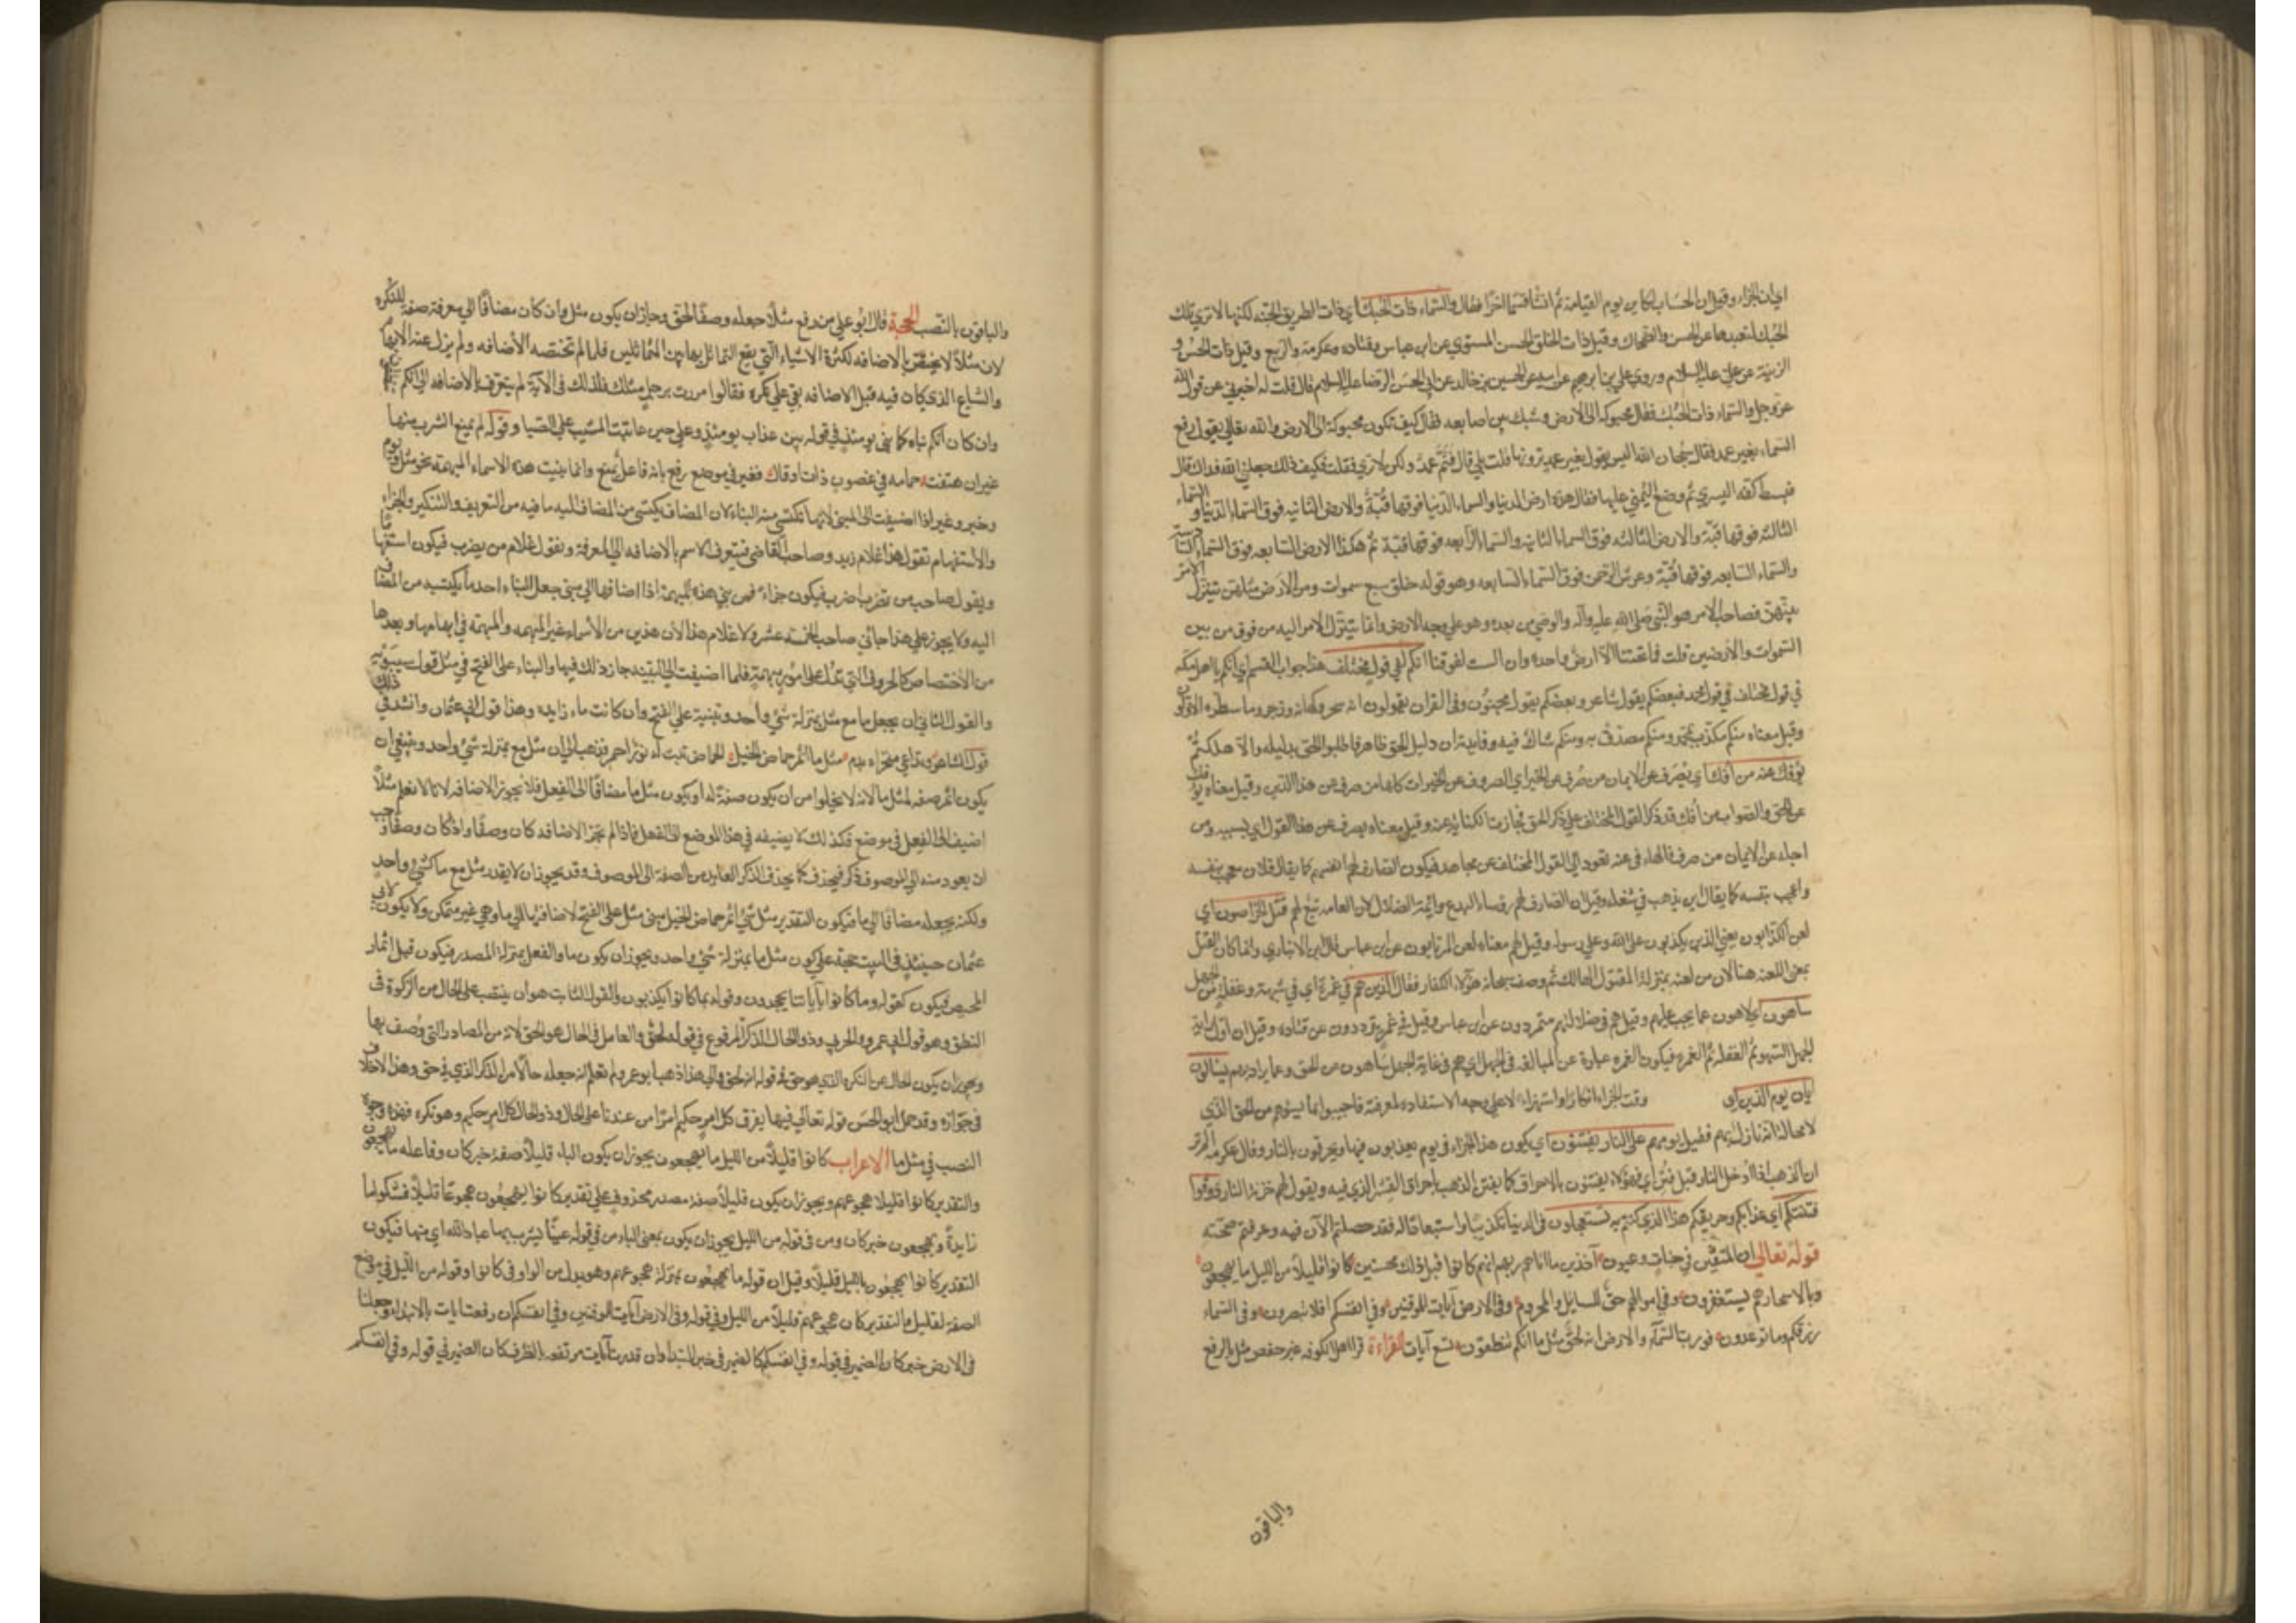 اي ان الجزاء وقيل ان الحساب لكاين يوم القيامة ثم انشا قسما اخر فقال والسماء ذات الحبك اي ذات الطريق الحسنه لكنها لا تري تلك
الحبك لبعدها عن الحسن والضحاك وقيل ذات الخلق الحسن المستوي عن ابن عباس وقتاده وعكرمة والربيع وقيل ذات الحسن و
الزينة عن علي عليه السلام وروي علي بن ابرهيم عن ابيه عن الحسين بن خالد عن ابي الحسن الرضا عليه السلام قال قلت له اخبرني عن قول الله
عز وجل والسماء ذات الحبك فقال محبوكة الى الارض وشبك بين اصابعه فقال كيف تكون محبوكة الى الارض والله تعالى يقول رفع
السماء بغير عمد فقال سبحان الله اليس يقول بغير عمد ترونها قلت بلي قال فثم عمد ولكن لا تري فقلت فكيف ذلك جعلني الله فداك قال
فبسط كفه اليسري ثم وضع اليمني عليها فقال هذه ارض الدنيا والسماء الدنيا فوقها قبة والارض الثانيه فوق السماء الدنيا والسماء
الثالثه فوقها قبة والارض الثالثه فوق السماء الثانيه والسماء الرابعه فوقها قبة ثم هكذا الارض السابعه فوق السماء السادسة
والسماء السابعه فوقها قبة وعرش الرحمن فوق السماء السابعه وهو قوله خلق سبع سموات ومن الارض مثلهن يتنزل الامر
بينهن فصاحب الامر هو النبي صلى الله عليه وآله والوصي من بعده وهو علي وجه الارض وانما يتنزل الامر اليه من فوق من بين
السموات والارضين قلت فما تحتنا الا ارض واحده وان الست لفوقنا انكم لفي قول مختلف هذا جواب القسم اي انكم يا اهل مكه
في قول مختلف في قول محمد فبعضكم يقول شاعر وبعضكم يقول مجنون وفي القران يقولون انه سحر وكهانه ورجز وما سطره الاولون
وقيل معناه منكم مكذب بمحمد ومنكم مصدق به ومنكم شاك فيه وفايدته ان دليل الحق ظاهر فاطلبوا الحق بدليله والا هلكتم
يؤفك عنه من افك اي يصرف عن الايمان من صرف عن الخير اي الصروف عن الخيرات كلها من صرف عن هذا الدين وقيل معناه يؤفك
عن الحق والصواب من افك فقد ذكر القول المختلف علي ذكر الحق فجازت الكنايه عنه وقيل معناه يصرف عن هذا القول اي بسببه ومن
اجله عن الايمان من صرف فالهاء في عنه تعود الي القول المختلف عن مجاهد فيكون الصارف لهم انفسهم كما يقال فلان معجب بنفسه
واعجب بنفسه كما يقال اين يذهب بك وقيل ان الصارف لهم رؤساء البدع وائمة الضلال لان العامه تبع لهم قتل الخراصون اي
لعن الكذابون يعني الذين يكذبون علي الله وعلي رسوله وقيل لهم معناه لعن المرتابون عن ابن عباس قال ابن الانباري وانما كان القتل
بمعني اللعنه هنا لان من لعنه بمنزلة المقتول الهالك ثم وصف سبحانه هؤلاء الكفار فقال الذين هم في غمرة اي في شبهة وغفلة من الجهل
ساهون اي لاهون عما يجب عليهم وقيل هم في ضلالتهم متمردون عن ابن عباس وقيل في غمرة يترددون عن قتاده وقيل ان اول مراتب
الجهل السهو ثم الغفلة ثم الغمره فيكون الغمره عبارة عن المبالغه في الجهل اي هم في غاية الجهل ساهون عن الحق وعما يراد بهم يسئلون
ايان يوم الدين اي وقت الجزاء انكارا واستهزاء لا علي وجه الاستفاده لمعرفته فاجيبوا بما يسؤهم من الحق الذي
لا محالة انه نازل بهم فقيل يوم هم على النار يفتنون اي يكون هذا الجزاء في يوم يعذبون فيها ويحرقون بالنار وقال عكرمه الم تر
ان الذهب اذا ادخل النار قيل فتن اي فهؤلاء يفتنون بالاحراق كما يفتن الذهب باحراق الغش الذي فيه ويقول لهم خزنة النار ذوقوا
فتنتكم اي عذابكم وحريقكم هذا الذي كنتم به تستعجلون في الدنيا تكذيبا واستبعادا له فقد حصلتم الآن فيه وعرفتم صحته
قوله تعالى ان المتقين في جنات وعيون آخذين ما اتاهم ربهم انهم كانوا قبل ذلك محسنين كانوا قليلا من الليل ما يهجعون
وبالاسحار هم يستغفرون وفي اموالهم حق للسايل والمحروم وفي الارض آيات للموقنين وفي انفسكم افلا تبصرون وفي السماء
رزقكم وما توعدون فورب السماء والارض انه لحق مثل ما انكم تنطقون تسع آيات القراءة قرا اهل الكوفه غير حفص مثل بالرفع
والباقون
والباقون بالنصب الحجة قال ابو علي من رفع مثلا جعله وصفا لحق وجاز ان يكون مثل وان كان مضافا الي معرفة صفة للنكره
لان مثلا لا يختص بالاضافه لكثرة الاشياء التي يقع التماثل بها بين المتماثلين فلما لم تختصه الاضافه ولم يزل عنه الابهام
والشياع الذي كان فيه قبل الاضافه بقي علي نكره فقالوا مررت برجل مثلك فلذلك في الآية لم يتعرف بالاضافه الي انكم
وان كان انكم بناه كما بني يومئذ في قوله من عذاب يومئذ وعلي حين عاتبت المشيب علي الصبا وقوله لم يمنع الشرب منها
غير ان هتفت حمامه في غصون ذات اوقال فغير في موضع رفع بانه فاعل يمنع وانما بنيت هذه الاسماء المبهمه نحو مثل ويوم
وحين وغير اذا اضيفت الى المبني لانها تكتسي منه البناء لان المضاف يكتسي من المضاف اليه ما فيه من التعريف والتنكير والجزاء
والاستفهام تقول هذا غلام زيد وصاحب القاضي فيتعرف الاسم بالاضافه الي المعرفة وتقول غلام من يضرب فيكون استفهاما
وتقول صاحب من تضرب اضرب فيكون جزاء فمن بني هذه المبهمة اذا اضافها الي مبني جعل البناء احد ما يكتسبه من المضاف
اليه ولا يجوز علي هذا جاني صاحب الخمسة عشر ولا غلام هذا لان هذين من الاسماء غير المبهمه والمبهمه في ابهامها وبعدها
من الاختصاص كالحروف التي تدل على امور مبهمة فلما اضيفت الي المبنيه جاز ذلك فيها والبناء على الفتح في مثل قول سيبويه
والقول الثاني ان يجعل ما مع مثل بمنزلة شئ واحد وتبنيه علي الفتح وان كانت ماء زايده وهذا قول ابي عثمان وانشد في ذلك
قول الشاعر وتداعي منخراه بدم مثل ما اثمر حماض الجبل الحماض نبت له نور احمر فذهب الي ان مثل مع بمنزلة شئ واحد وينبغي ان
يكون اثمر صفه لمثل ما لانه لا يخلوا من ان يكون صفة له او يكون مثل ما مضافا الى الفعل فلا يجوز الاضافه لانا لا نعلم مثلا
اضيف الى الفعل في موضع فكذلك لا يضيفه في هذا الموضع الى الفعل فاذا لم تجز الاضافه كان وصفا واذا كان وصفا وجب
ان يعود منه الي الموصوف ذكر فيحذف كما يحذف الذكر العايد من الصفة الى الموصوف وقد يجوز ان لا يقدر مثل مع ما كشئ واحد
ولكنه يجعله مضافا الي ما فيكون التقدير مثل شئ اثمره حماض الجبل فبني مثل علي الفتح لاضافتها الي ما وهي غير متمكن ولا يكون لابي
عثمان حينئذ في البيت حجة علي كون مثل ما بمنزلة شئ واحد ويجوز ان يكون ما والفعل بمنزلة المصدر فيكون قبل اثمار
الحميص فيكون كقوله وما كانوا بآياتنا يجحدون وقوله بما كانوا يكذبون والقول الثالث هو ان ينتصب على الحال من النكرة في
النطق وهو قول ابي عمرو الجرمي وذو الحال الذكر المرفوع في قوله لحق والعامل في الحال هو الحق لانه من المصادر التي وصف بها
ويجوز ان يكون الحال عن النكره الذي هو حق في قوله انه لحق والي هذا ذهب ابو عمر ولم نعلم انه جعله حالا من الذكر الذي في حق وهذا لا خلاف
في جوازه وقد حمل ابو الحسن قوله تعالي فيها يفرق كل امر حكيم امرا من عندنا على الحال وذو الحال كل امر حكيم وهو نكره فهذه وجوه
النصب في مثل ما الاعراب كانوا قليلا من الليل ما يهجعون يجوز ان يكون الباء قليلا صفه خبر كان وفاعله ما يهجعون
والتقدير كانوا قليلا هجوعهم ويجوز ان يكون قليلا صفة مصدر محذوف علي تقدير كانوا يهجعون هجوعا قليلا فتكون ما
زايدة ويهجعون خبر كان ومن في قوله من الليل يجوز ان يكون بمعني الباء من في قوله عينا يشرب بها عباد الله اي منها فيكون
التقدير كانوا يهجعون بالليل قليلا وقيل ان قوله ما يهجعون بمنزلة هجوعهم وهو بدل من الواو في كانوا وقوله من الليل في موضع
الصفة لقليل والتقدير كان هجوعهم قليلا من الليل وفي قوله وفي الارض آيات للموقنين وفي انفسكم ان رفعت آيات بالابتداء وجعلنا
في الارض خبرا كان الضمير في قوله وفي انفسكم كالضمير في خبر المبتدا وان قدرت آيات مرتفعه بالظرف كان الضمير في قوله وفي انفسكم